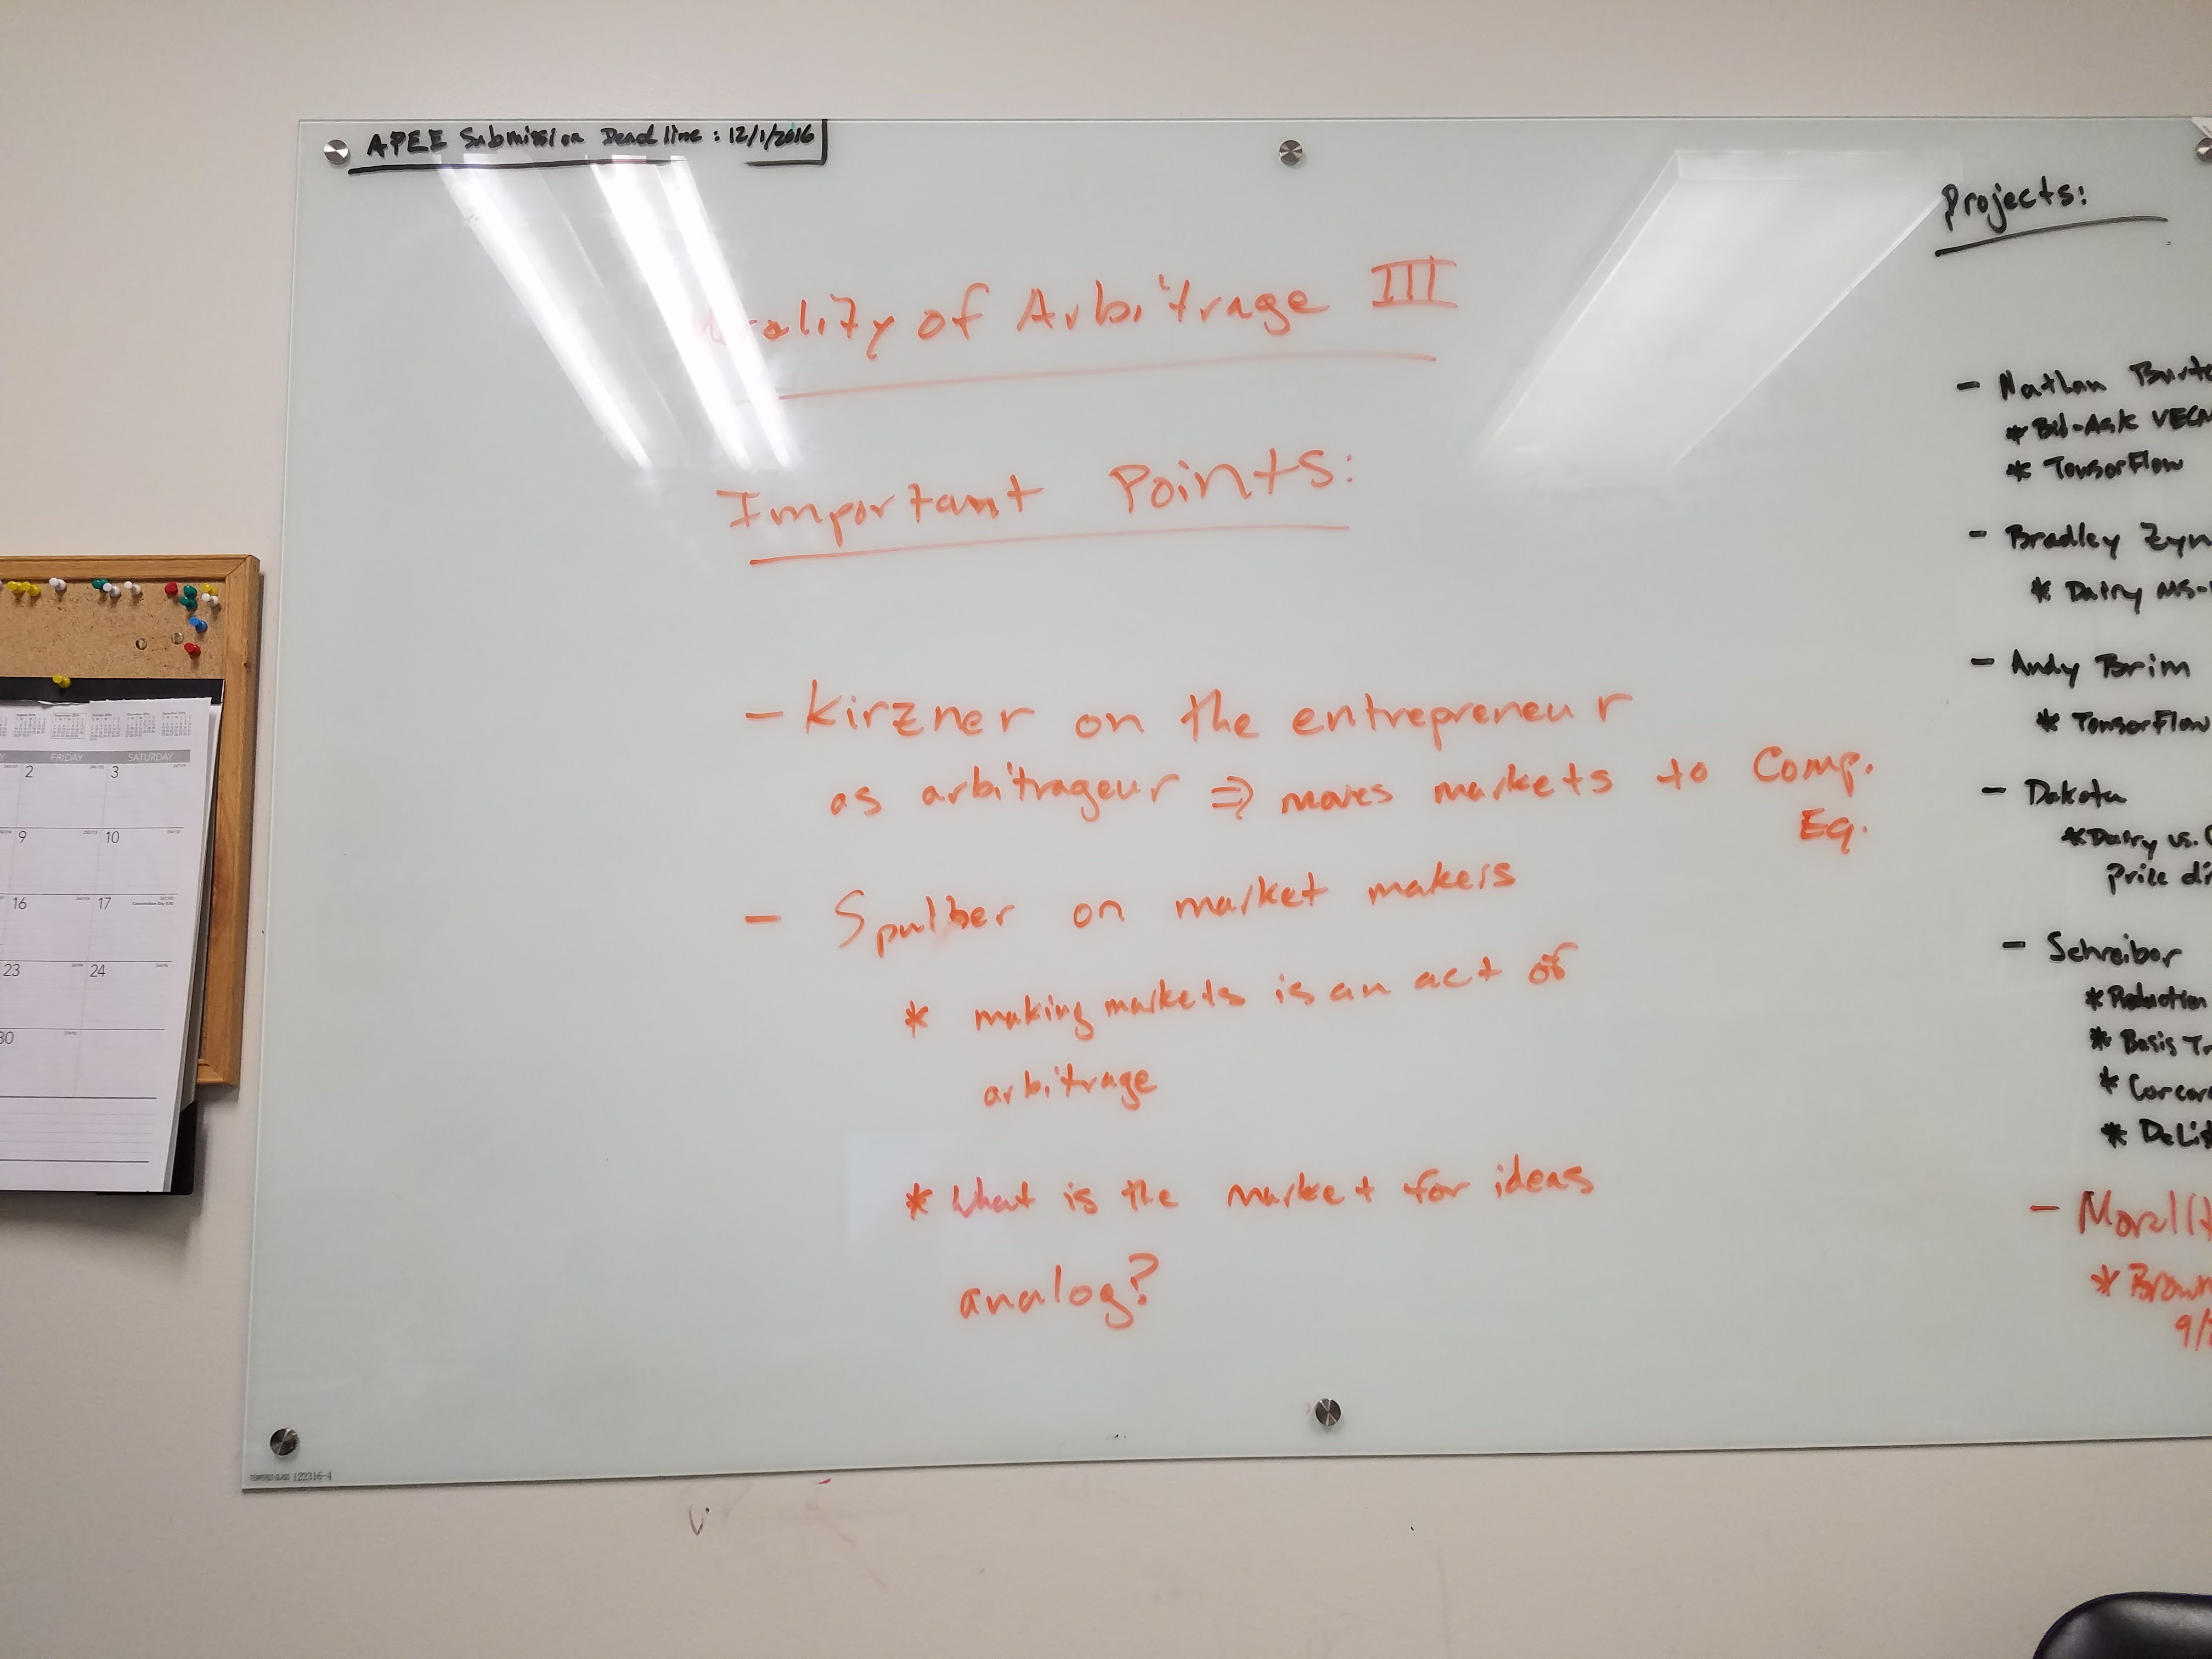 APEE Submission Deadline: 12/1/2016
of Arbitrage III
Important Points:
- Kirzner on the entrepreneur
as arbitrageur ⇒ moves markets to Comp.
Eq.
- Spulber on market makers
* making markets is an act of
arbitrage
* What is the market for ideas
analog?
Projects:
- Nathan
* Bid-Ask
* TensorFlow
- Bradley
* Dairy
- Andy Brim
* TensorFlow
- Dakota
* Dairy vs.
Price
- Schreiber
* Production
* Basis
*
*
-
*
FRIDAY SATURDAY
2 3
9 10
16 17
23 24
30
TEMPERED GLASS 122316-4